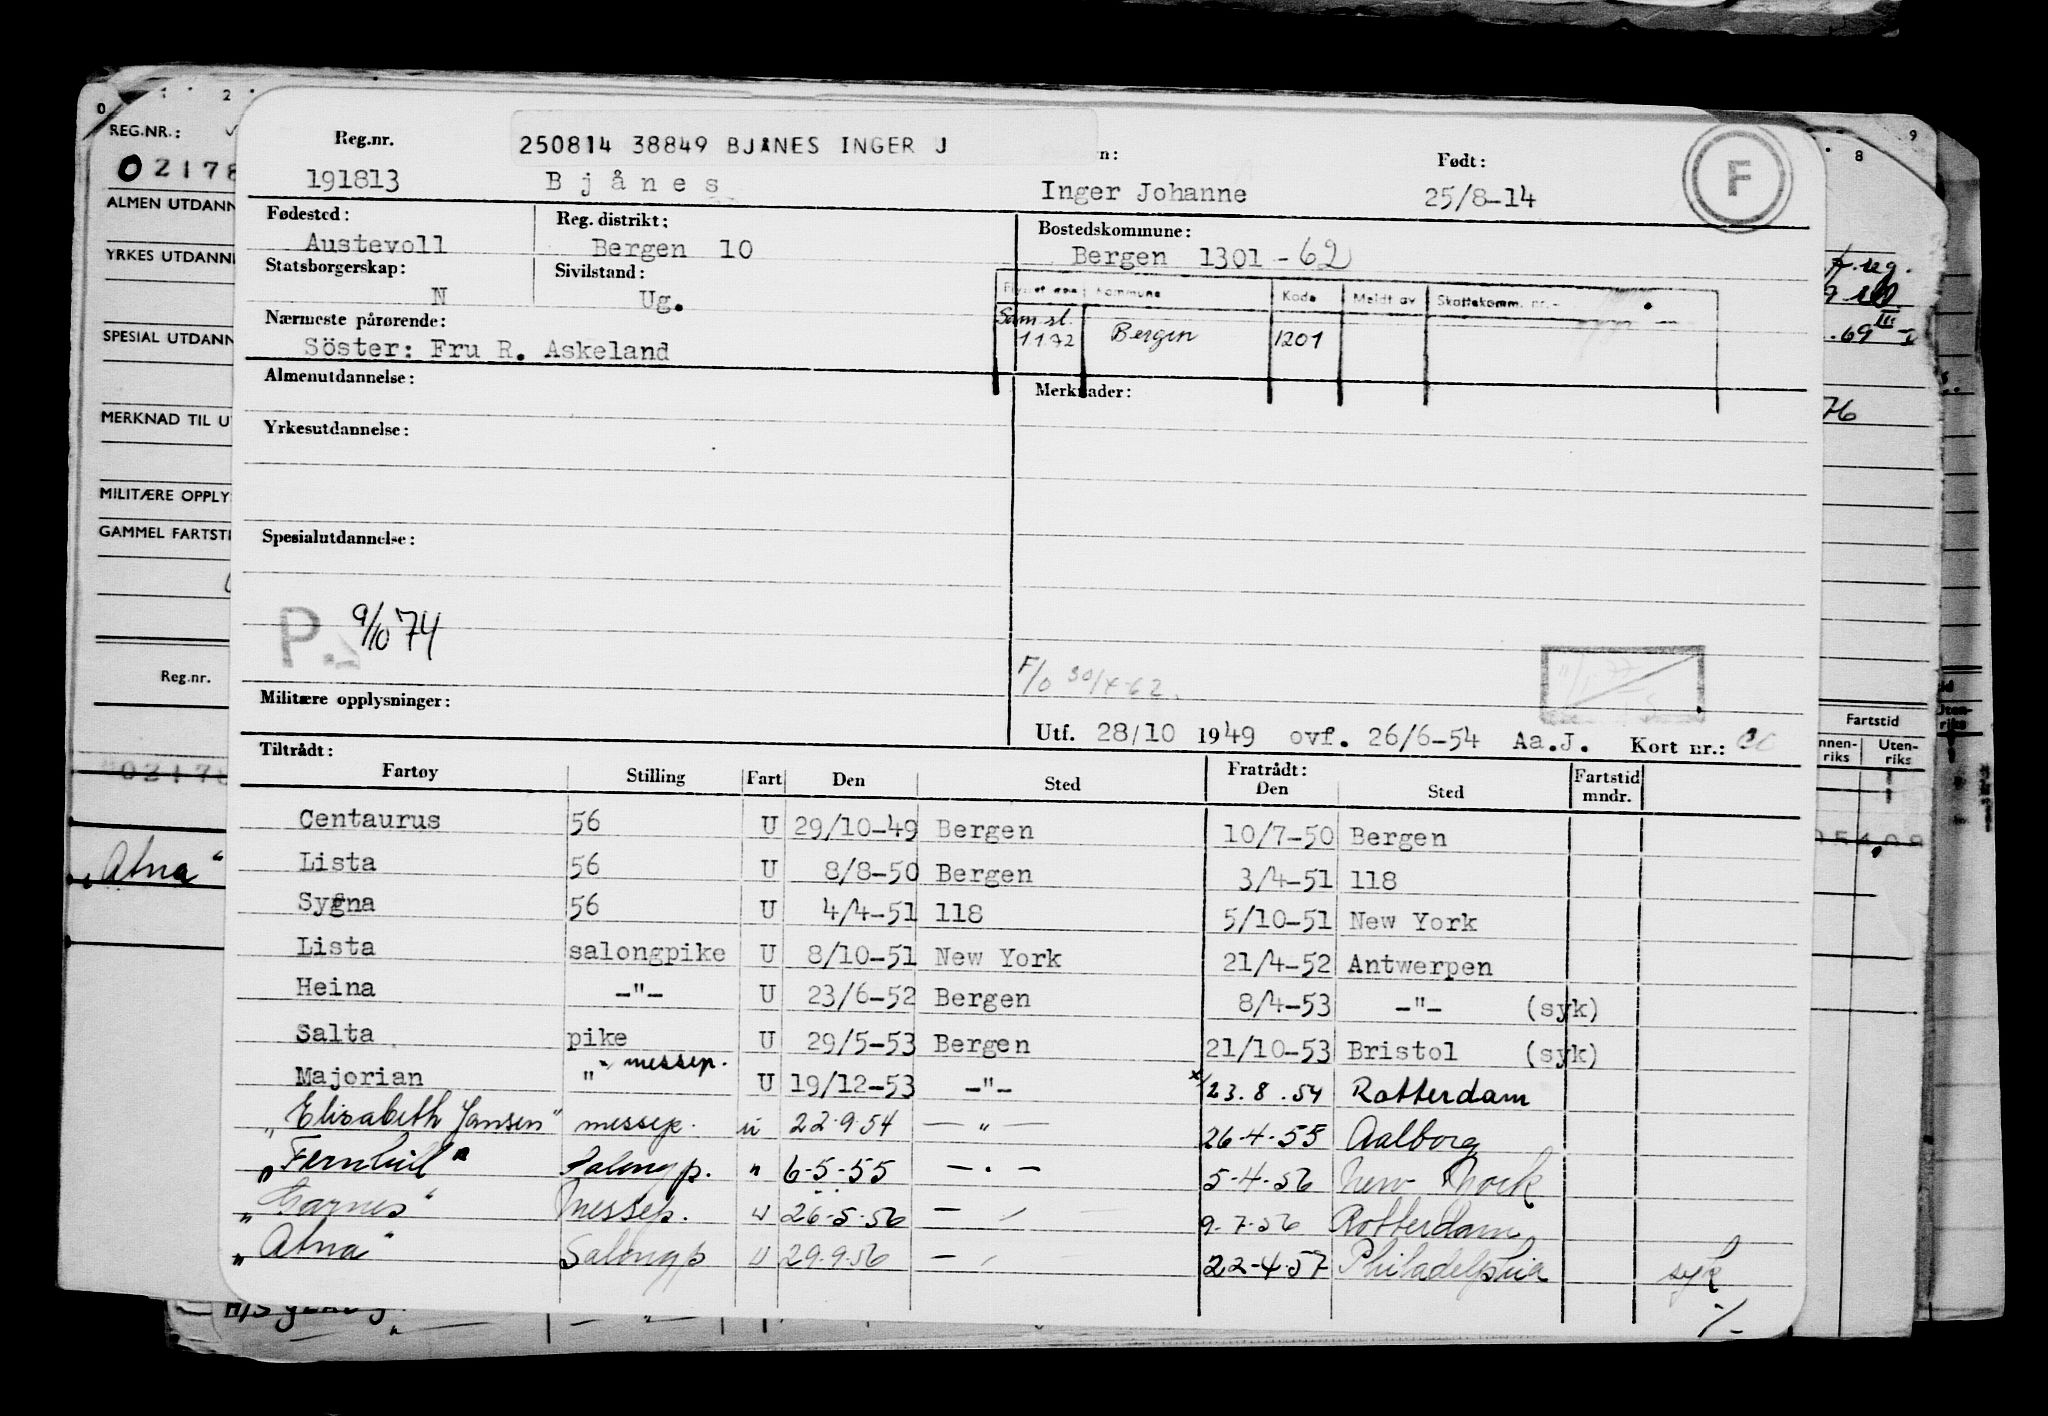 0 1 2 8 9
REG.NR.:
02178
ALMEN UTDANN
YRKES UTDANN
SPESIAL UTDANN
MERKNAD TIL U
MILITÆRE OPPLY
GAMMEL FARTSTI
Reg.nr.
02178
"Atna"
Reg.nr. 250814 38849 BJÅNES INGER J n: Født: F
191813 Bjånes Inger Johanne 25/8-14
Fødested: Reg. distrikt: Bostedskommune:
Austevoll Bergen 10 Bergen 1301 - 62
Statsborgerskap: Sivilstand:
N Ug.
Kommune Kode Meldt av Skattekomm. nr.
Nærmeste pårørende:
Söster: Fru R. Askeland
Sam.sl. 1172 Bergen 1201
Almenutdannelse: Merknader:
Yrkesutdannelse:
Spesialutdannelse:
P. 9/10 74
F/o 30/4-62.
Militære opplysninger:
Utf. 28/10 1949 ovf. 26/6-54 Aa.J. Kort nr.:
Tiltrådt: Fratrådt:
Fartøy Stilling Fart Den Sted Den Sted Fartstid mndr.
Centaurus 56 U 29/10-49 Bergen 10/7-50 Bergen
Lista 56 U 8/8-50 Bergen 3/4-51 118
Sygna 56 U 4/4-51 118 5/10-51 New York
Lista salongpike U 8/10-51 New York 21/4-52 Antwerpen
Heina -"- U 23/6-52 Bergen 8/4-53 -"- (syk)
Salta pike U 29/5-53 Bergen 21/10-53 Bristol (syk)
Majorian " messep. U 19/12-53 -"- x/23.8.54 Rotterdam
"Elisabeth Jansen" messep. u 22.9.54 — " — 26-4-55 Aalborg
"Fernhill" Salongp. " 6-5-55 — " — 5-4-56 New York
"Garnes" Messep. u 26-5-56 — " — 9-7-56 Rotterdam
"Atna" Salongp U 29.9.56 — " 22-4-57 Philadelphia syk
./-
69 III
76
Fartstid
nnen-riks Uten-riks